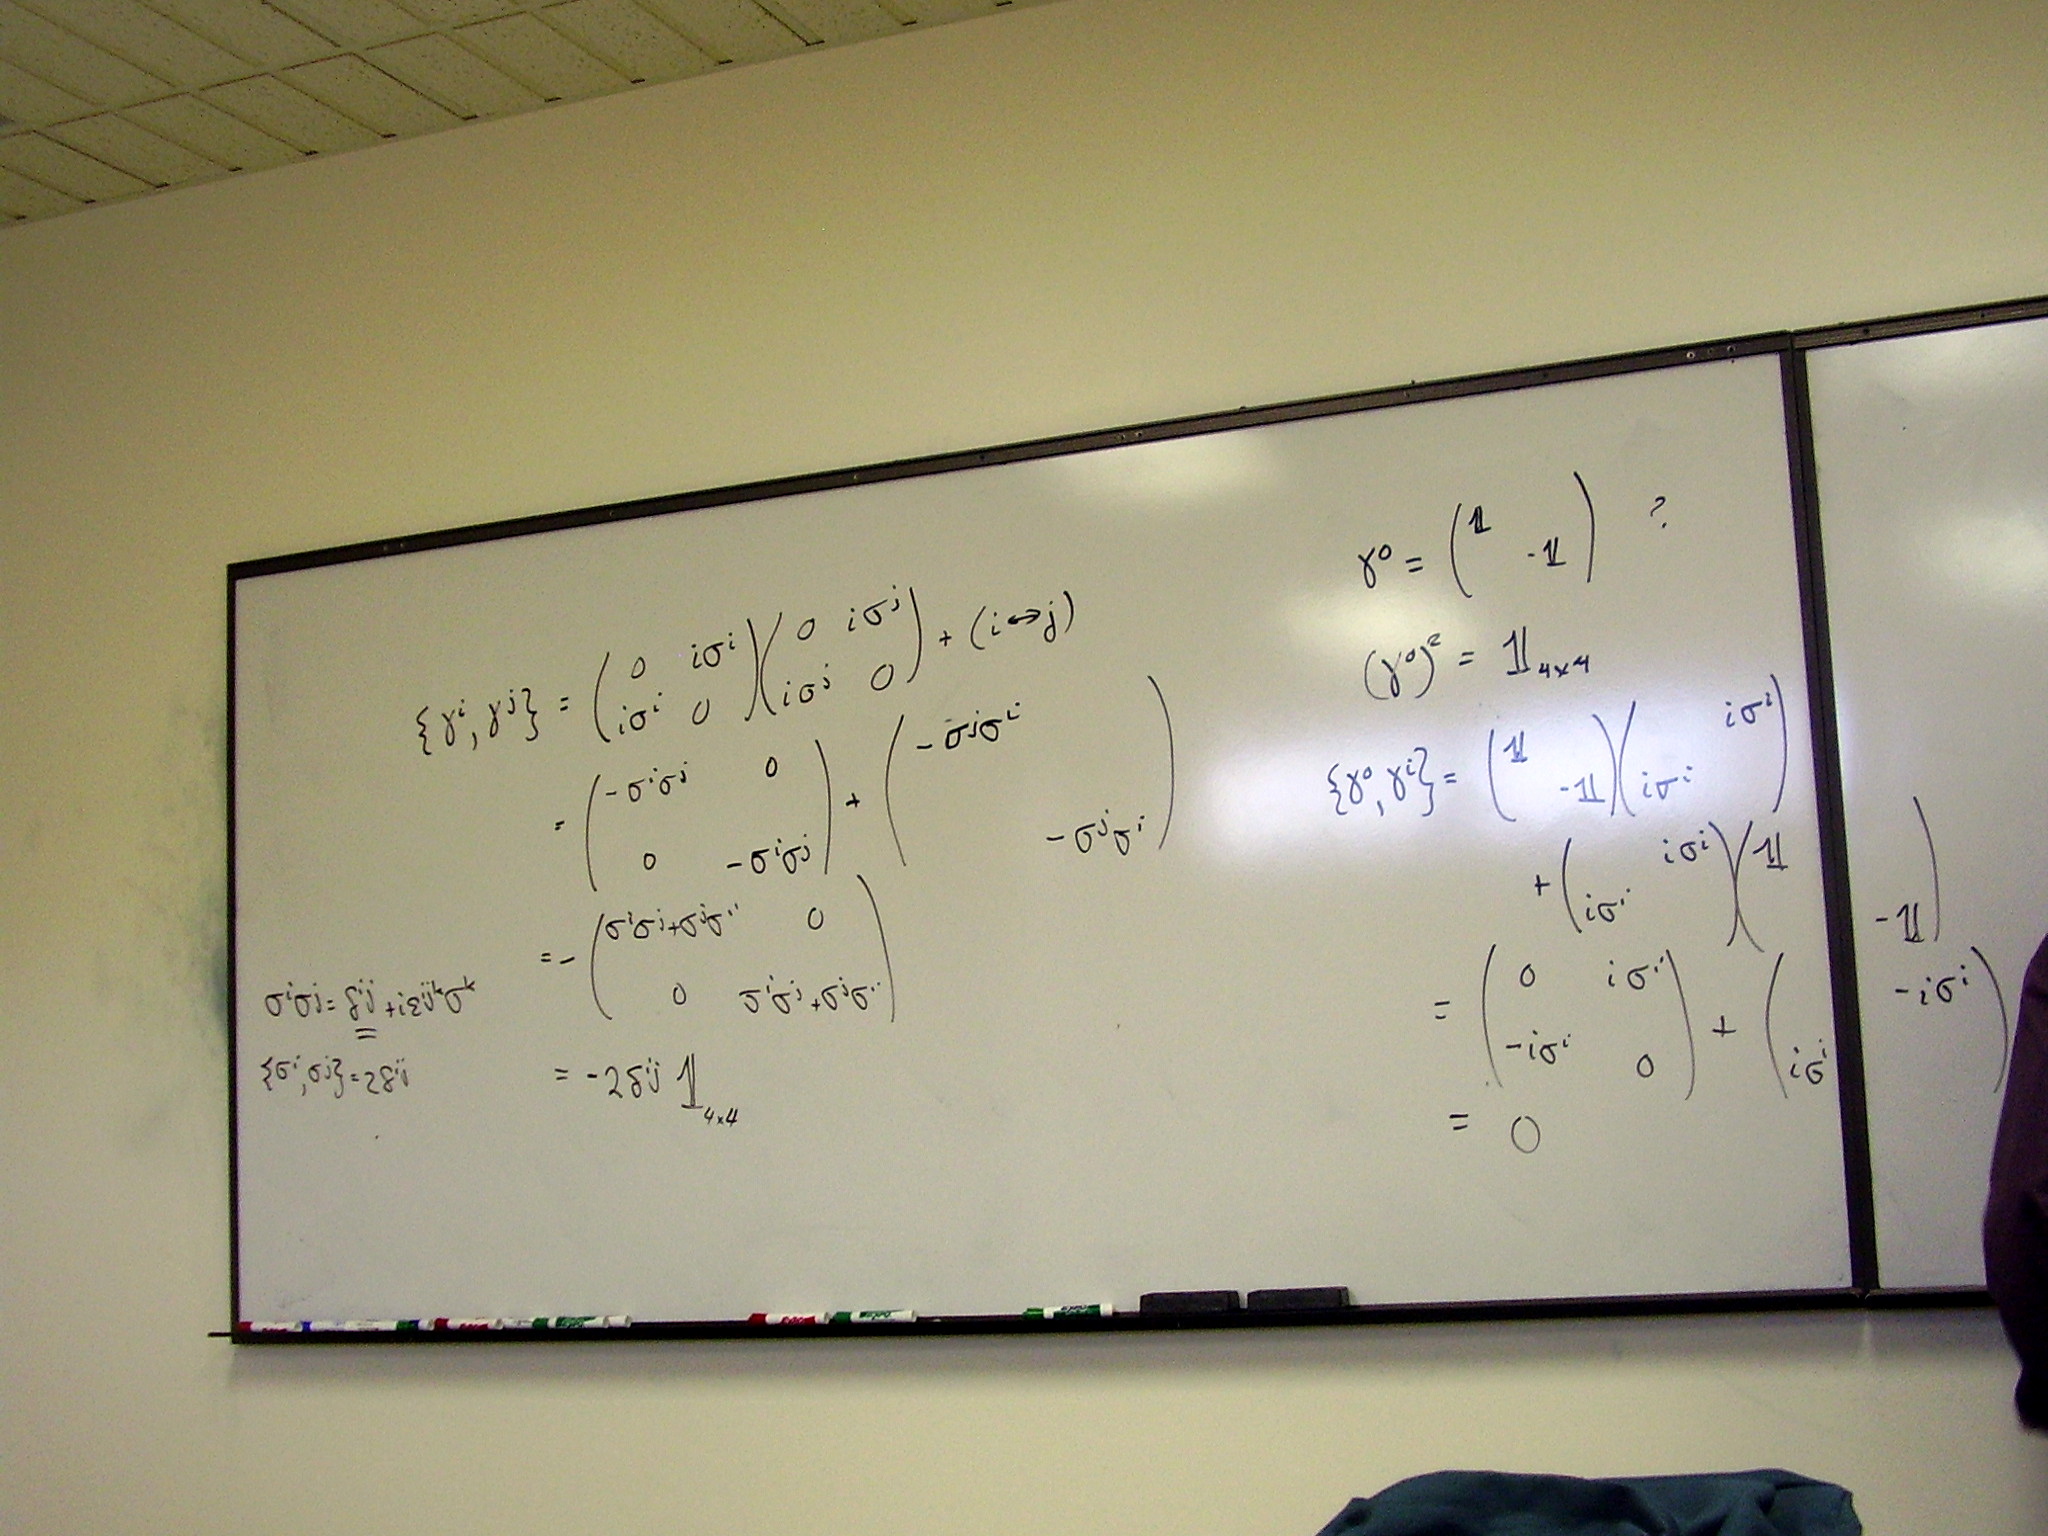 {γ^i, γ^j} = ( 0 iσ^i ; iσ^i 0 )( 0 iσ^j ; iσ^j 0 ) + (i↔j)
= ( -σ^iσ^j 0 ; 0 -σ^iσ^j ) + ( -σ^jσ^i ; -σ^jσ^i )
= - ( σ^iσ^j+σ^jσ^i 0 ; 0 σ^iσ^j+σ^jσ^i )
= -2δ^ij 𝟙_4×4
σ^iσ^j = δ^ij + iε^ijkσ^k
{σ^i, σ^j} = 2δ^ij
γ^0 = ( 𝟙 ; -𝟙 ) ?
(γ^0)^2 = 𝟙_4×4
{γ^0, γ^i} = ( 𝟙 ; -𝟙 )( iσ^i ; iσ^i )
+ ( iσ^i ; iσ^i )( 𝟙 ; -𝟙 )
= ( 0 iσ^i ; -iσ^i 0 ) + ( -iσ^i ; iσ^i )
= 0